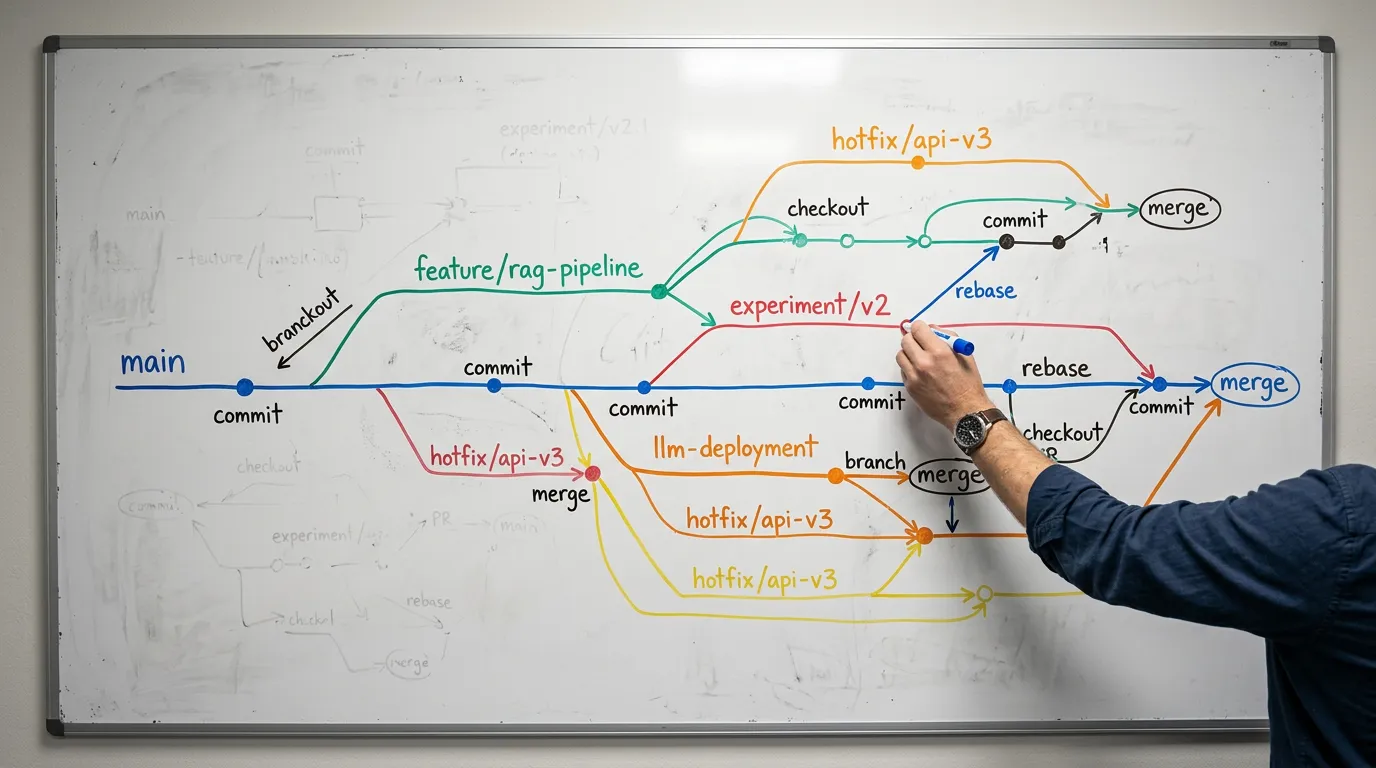 experiment/v2.1
commit
hotfix/api-v3
main
checkout
commit
merge
feature/rag-pipeline
branckout
experiment/v2
rebase
main
commit
rebase
merge
commit
commit
commit
commit
hotfix/api-v3
llm-deployment
branch
merge
checkout
merge
hotfix/api-v3
hotfix/api-v3
checkout
commit
experiment/
PR
main
rebase
merge